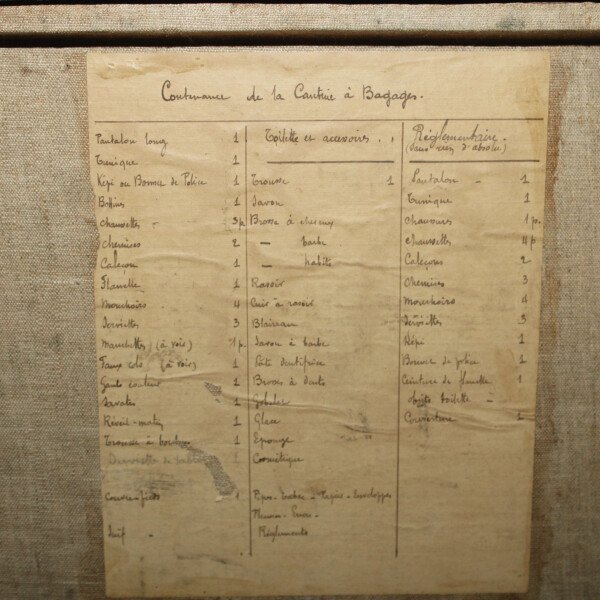 Contenance de la Cantine à Bagages.
Pantalon long 1
Tunique 1
Képi ou Bonnet de Police 1
Bottines 1
Chaussettes - 3 p.
Chemises 2
Caleçon 1
Flanelle 1
Mouchoirs 4
Serviettes 3
Manchettes (à voir) 1 p.
Faux cols (à voir) 1
Gants couleur 1
Savates 1
Réveil-matin 1
Trousse à boutons 1
Serviette de table 1
Couvre-pieds 1
Suif -
Toilette et accessoires . .
Trousse 1
Savon
Brosse à cheveux
— barbe
— habits
Rasoir
Cuir à rasoir
Blaireau
Savon à barbe
Pâte dentifrice
Brosses à dents
Gobelet
Glace
Eponge
Cosmétique
Pipe - Tabac - Papier - Enveloppes
Plumes - Encre -
Règlements
Réglementaire.
(sans rien d'absolu)
Pantalon - 1
Tunique 1
Chaussures 1 p.
Chaussettes 4 p
Caleçons 2
Chemises 3
Mouchoirs 4
Serviettes 3
Képi 1
Bonnet de police 1
Ceinture de flanelle 1
objets toilette -
Couverture 1